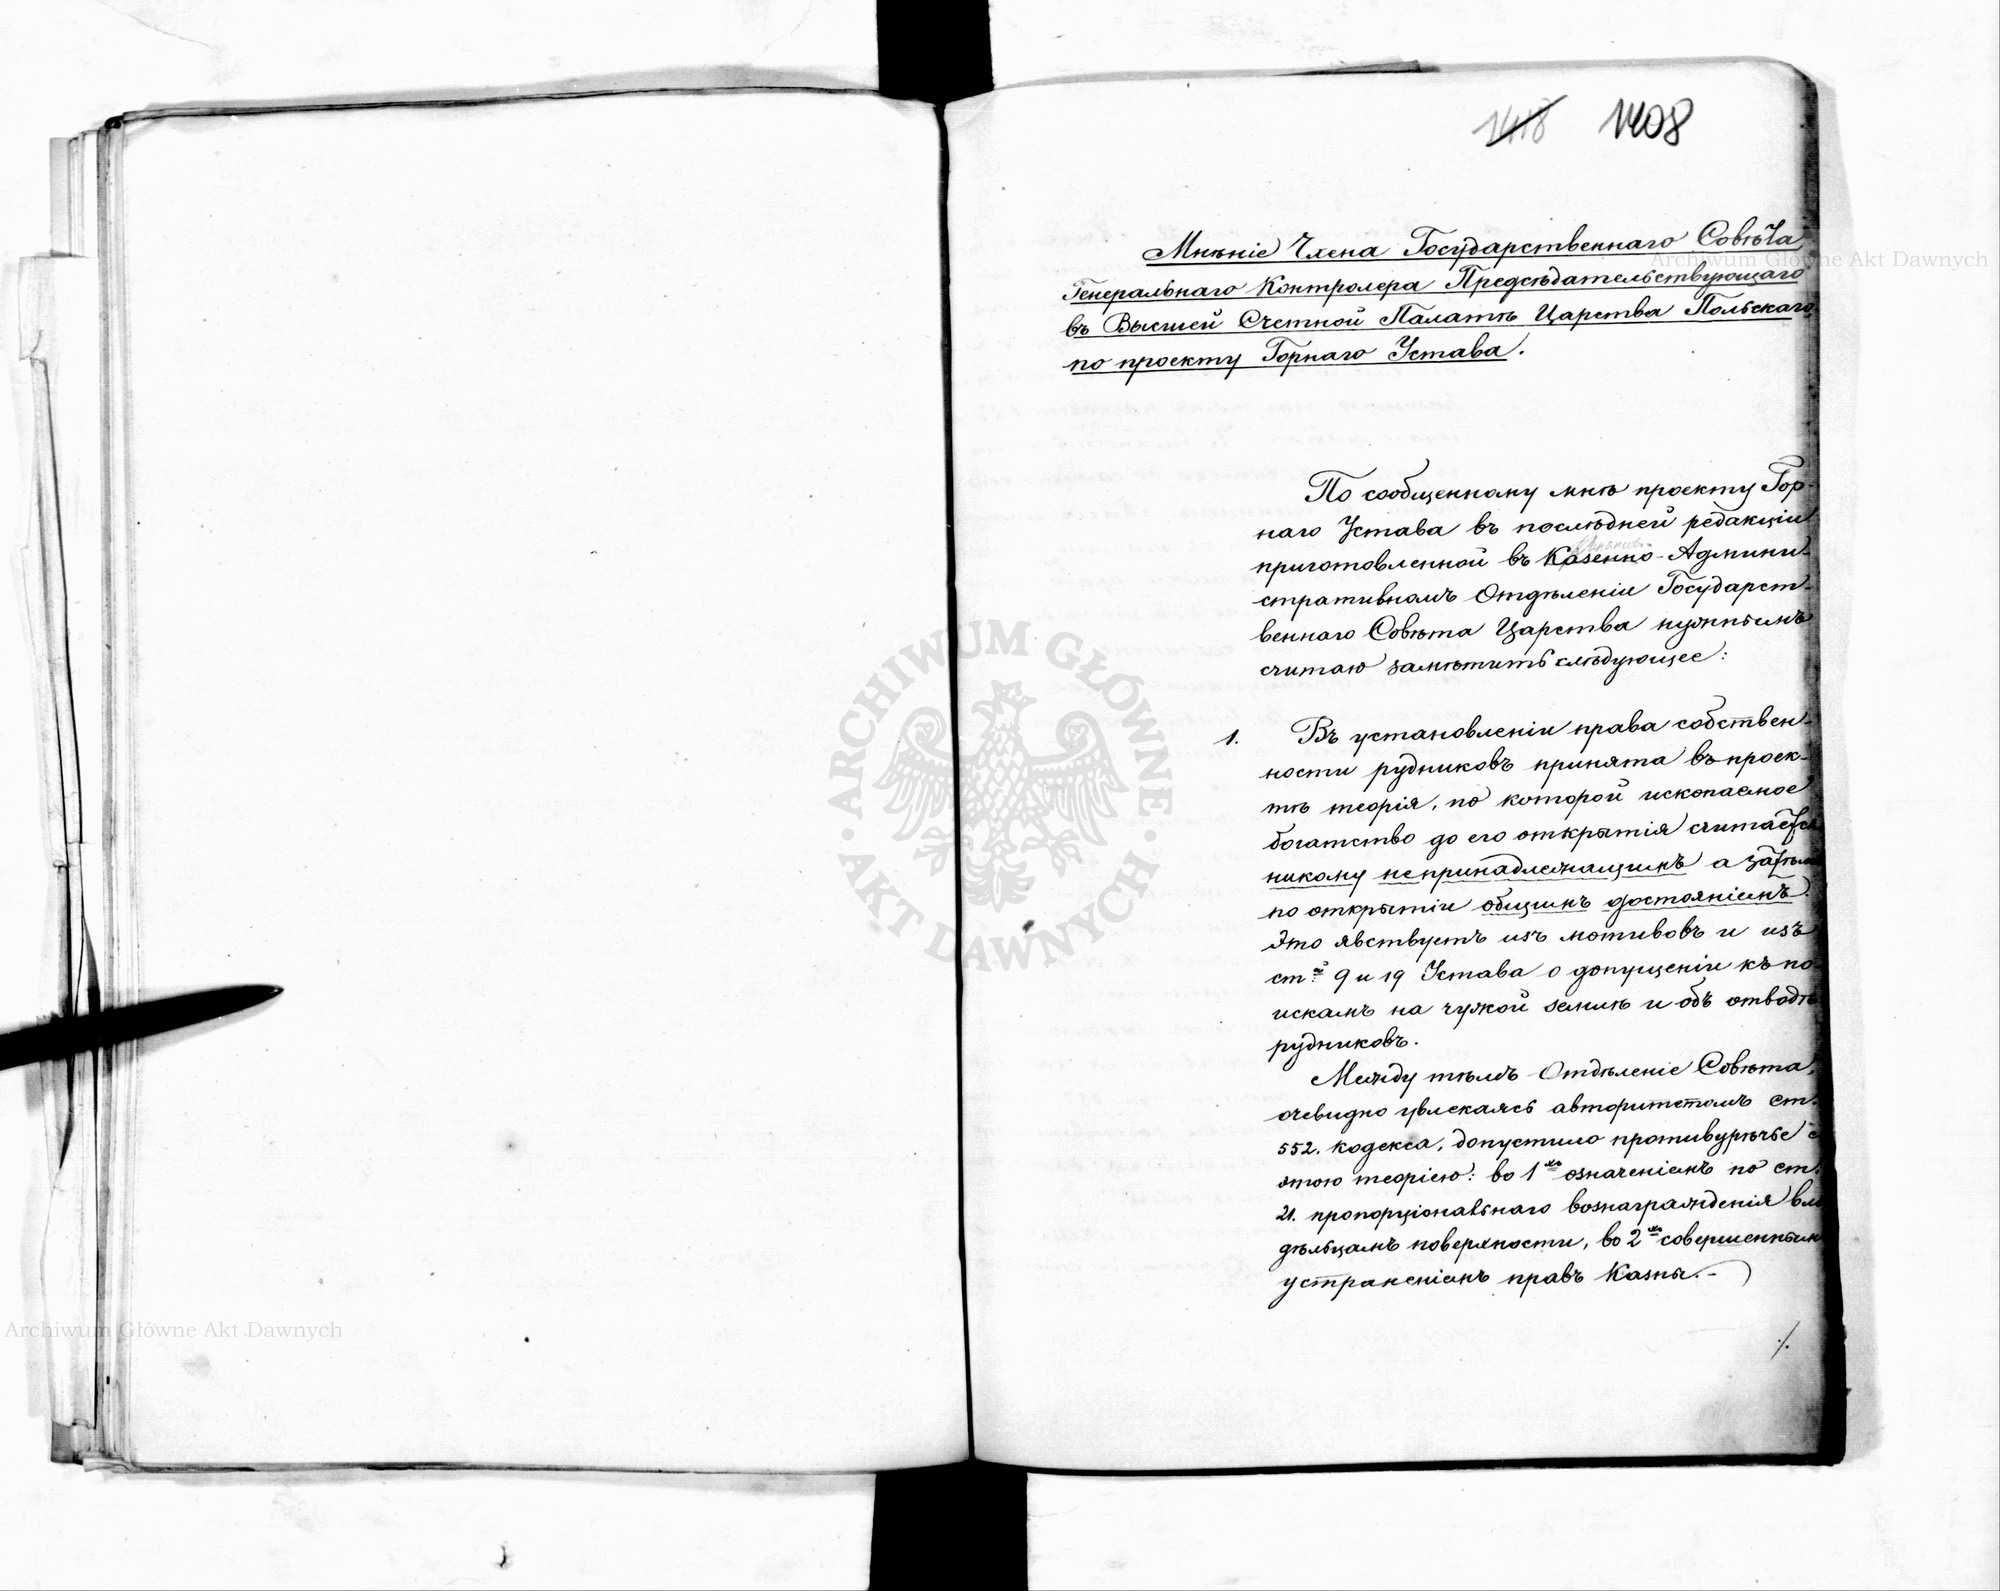 1418 1408
Мнѣніе Члена Государственнаго Совѣта,
Генеральнаго Контролера Предсѣдательствующаго
въ Высшей Счетной Палатѣ Царства Польскаго,
по проекту Горнаго Устава.
По сообщенному мнѣ проекту Гор-
наго Устава въ послѣдней редакціи
приготовленной въ Казенно-Админи-
стративномъ Отдѣленіи Государст-
веннаго Совѣта Царства нужнымъ
считаю замѣтить слѣдующее:
1. Въ установленіи права собствен-
ности рудниковъ принята въ проек-
тѣ теорія, по которой ископаемое
богатство до его открытія считается
никому непринадлежащимъ а затѣмъ
по открытіи общимъ достояніемъ.
Это явствуетъ изъ мотивовъ и изъ
ст.й 9 и 19 Устава о допущеніи къ по-
искамъ на чужой землѣ и объ отводѣ
рудниковъ.
Между тѣмъ Отдѣленіе Совѣта,
очевидно увлекаясь авторитетомъ ст.
552. кодекса, допустило противурѣчье с
этою теоріею: во 1хъ означеніемъ по ст.
21. пропорціональнаго вознагражденія вла
дѣльцамъ поверхности, во 2хъ совершеннымъ
устраненіемъ правъ Казны.-
./.
ARCHIWUM GŁÓWNE · AKT DAWNYCH ·
Archiwum Główne Akt Dawnych
Archiwum Główne Akt Dawnych